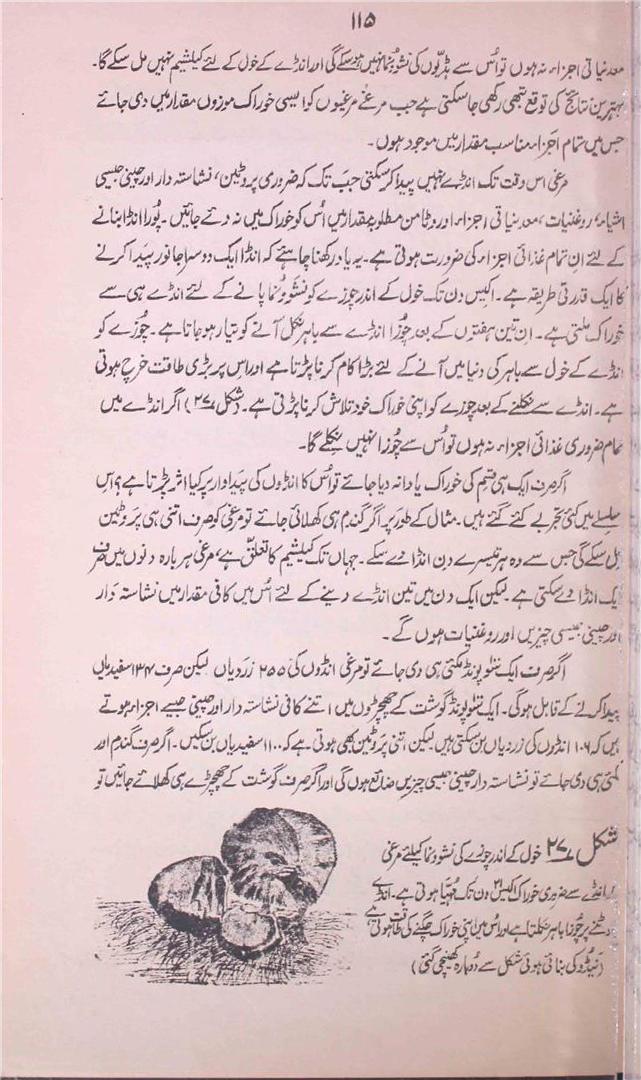 ۱۱۵
معدنیاتی اجزاء نہ ہوں تو اُس سے ہڈیوں کی نشوونما نہیں ہوسکے گی اور انڈے کے خول کے لئے کیلشیم نہیں مل سکے گا۔
بہترین نتائج کی توقع تبھی رکھی جاسکتی ہے جب مرغے مرغیوں کو ایسی خوراک موزوں مقدار میں دی جائے
جس میں تمام اجزاء مناسب مقدار میں موجود ہوں۔
مرغی اس وقت تک انڈے نہیں پیدا کرسکتی جب تک کہ ضروری پروٹین، نشاستہ دار اور چینی جیسی
اشیاء، روغنیات، معدنیاتی اجزاء اور وٹامن مطلوبہ مقدار میں اُس کو خوراک میں نہ دئے جائیں۔ پورا انڈا بنانے
کے لئے ان تمام غذائی اجزاء کی ضرورت ہوتی ہے۔ یہ یاد رکھنا چاہئے کہ انڈا ایک دوسرا جانور پیدا کرنے
کا ایک قدرتی طریقہ ہے۔ اکیس دن تک خول کے اندر چوزے کو نشوونما پانے کے لئے انڈے ہی سے
خوراک ملتی ہے۔ ان تین ہفتوں کے بعد چوزا انڈے سے باہر نکل آنے کو تیار ہوجاتا ہے۔ چوزے کو
انڈے کے خول سے باہر کی دنیا میں آنے کے لئے بڑا کام کرنا پڑتا ہے اور اس پر بڑی طاقت خرچ ہوتی
ہے۔ انڈے سے نکلنے کے بعد چوزے کو اپنی خوراک خود تلاش کرنا پڑتی ہے۔ (شکل ۲۷) اگر انڈے میں
تمام ضروری غذائی اجزاء نہ ہوں تو اُس سے چوزا نہیں نکلے گا۔
اگر صرف ایک ہی قسم کی خوراک یا دانہ دیا جائے تو اُس کا انڈوں کی پیداوار پر کیا اثر پڑتا ہے؟ اس
سلسلے میں کئی تجربے کئے گئے ہیں۔ مثال کے طور پر اگر گندم ہی کھلائی جائے تو مرغی کو صرف اتنی ہی پروٹین
مل سکے گی جس سے وہ ہر تیسرے دن انڈا دے سکے۔ جہاں تک کیلشیم کا تعلق ہے، مرغی ہر بارہ دنوں میں صرف
ایک انڈا دے سکتی ہے۔ لیکن ایک دن میں تین انڈے دینے کے لئے اُس میں کافی مقدار میں نشاستہ دار
اور چینی جیسی چیزیں اور روغنیات ہوں گے۔
اگر صرف ایک سَو پونڈ مکئی ہی دی جائے تو مرغی انڈوں کی ۲۵۵ زردیاں لیکن صرف ۱۳۴ سفیدیاں
پیدا کرنے کے قابل ہوگی۔ ایک سَو پونڈ گوشت کے چھچڑوں میں اتنے کافی نشاستہ دار اور چینی جیسے اجزاء ہوتے
ہیں کہ ۱۰۶ انڈوں کی زردیاں بن سکتی ہیں لیکن اتنی پروٹین بھی ہوتی ہے کہ ۱۱۰۰ سفیدیاں بن سکیں۔ اگر صرف گندم اور
مکئی ہی دی جائے تو نشاستہ دار چینی جیسی چیزیں ضائع ہوں گی اور اگر صرف گوشت کے چھچڑے ہی کھلائے جائیں تو
شکل ۲۷ خول کے اندر چوزے کی نشوونما کیلئے مرغی
انڈے سے ضروری خوراک اکیس ۲۱ دن تک مہیّا ہوتی ہے۔ انڈے
ٹوٹنے پر چوزا باہر نکلتا ہے اور اُس میں اپنی خوراک چگنے کی طاقت ہوتی ہے
(نیڈو کی بنائی ہوئی شکل سے دوبارہ کھینچی گئی)